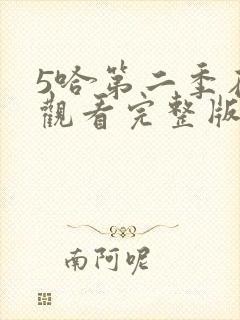 5哈第二季
觀看完整版
南阿呢